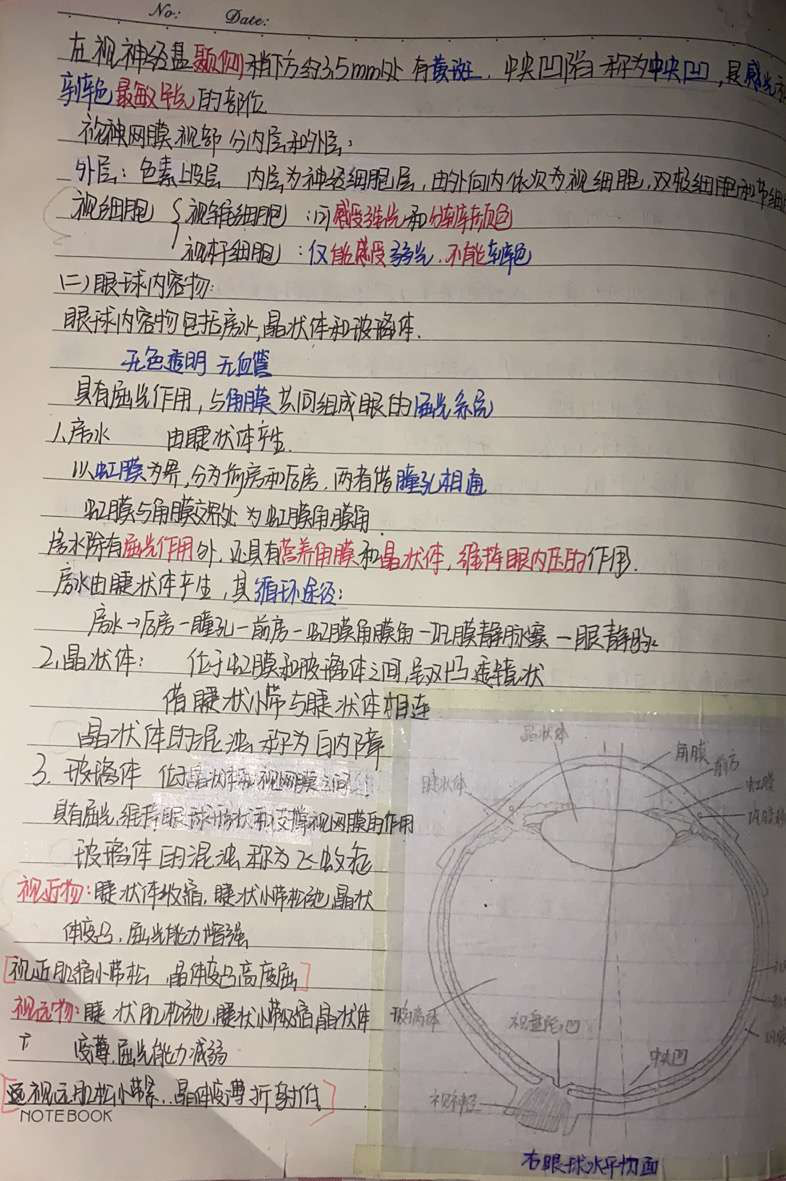 No: Date:
在视神经盘颞侧稍下方约3.5mm处 有黄斑. 中央凹陷 称为中央凹, 是感光
辨色最敏锐的部位
视神网膜视部 分内层和外层:
外层: 色素上皮层 内层为神经细胞层, 由外向内依次为视细胞, 双极细胞和节细
视细胞 { 视锥细胞 : 可感受强光和分辨颜色
视杆细胞 : 仅能感受弱光, 不能辨色
(二)眼球内容物:
眼球内容物包括房水, 晶状体和玻璃体.
无色透明 无血管
具有屈光作用, 与角膜共同组成眼的屈光系统
1. 房水 由睫状体产生.
以虹膜为界, 分为前房和后房. 两者借瞳孔相通
虹膜与角膜交界处为虹膜角膜角.
房水除有屈光作用外, 还具有营养角膜和晶状体, 维持眼内压的作用.
房水由睫状体产生, 其循环途径:
房水→后房—瞳孔—前房—虹膜角膜角—巩膜静脉窦—眼静脉
2. 晶状体: 位于虹膜和玻璃体之间, 呈双凸透镜状
借睫状小带与睫状体相连
晶状体的混浊称为白内障
3. 玻璃体 位于晶状体和视网膜之间
具有屈光, 维持眼球形状和支撑视网膜的作用
玻璃体的混浊称为飞蚊症
视近物: 睫状体收缩, 睫状小带松弛, 晶状
体变凸, 屈光能力增强
[视近肌缩小带松 晶体变凸高度屈]
视远物: 睫状肌松弛, 睫状小带收缩晶状体
变薄, 屈光能力减弱
[视远肌松小带紧.. 晶体变薄折射低]
NOTEBOOK
晶状体
角膜
前房
睫状体
虹膜
玻璃体
视盘陷凹
中央凹
视神经
右眼球水平切面